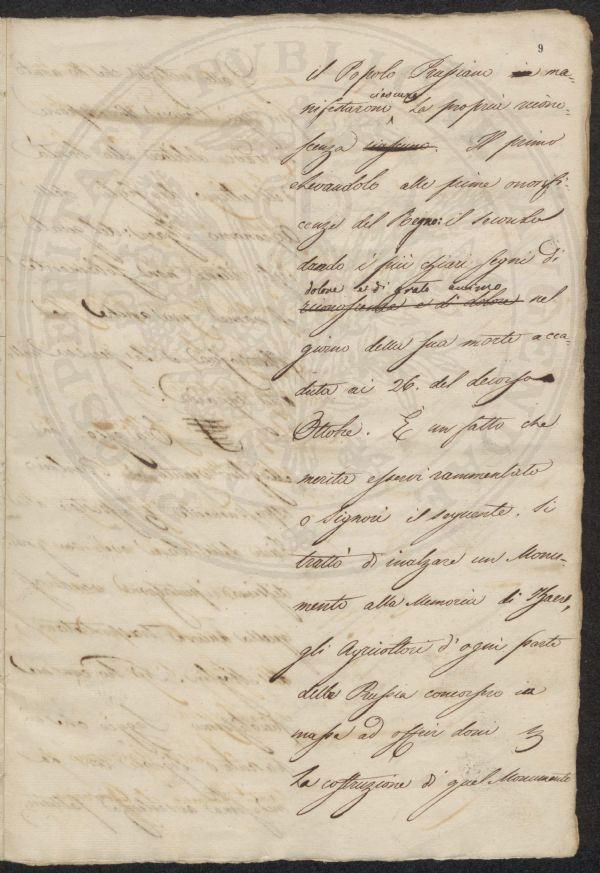 9
il Popolo Prussiano in ma-
nifestarono ciascuno la propria ricono-
scenza ciascuno. Il primo
elevandolo alle prime onorifi-
cenze del Regno: il secondo
dando i più chiari segni di
dolore e di grato animo
riconoscenza e di dolore nel
giorno della sua morte acca-
duta ai 26. del decorso
Ottobre. È un fatto che
merita esservi rammentato
o Signori il seguente. Si
trattò di inalzare un Monu-
mento alla Memoria di Thaer,
gli Agricoltori d'ogni parte
della Prussia concorsero in
massa ad offrir doni
La costruzione di quel Monumento